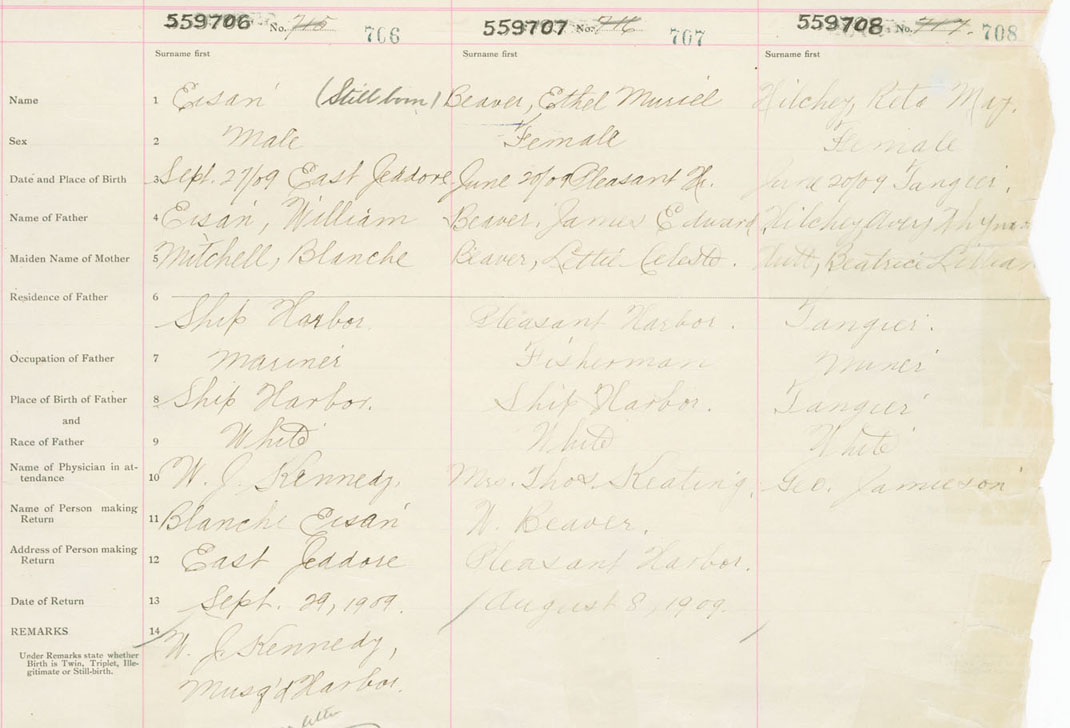 559706 No. 715 706 559707 No. 716 707 559708 No. 717. 708
Surname first Surname first Surname first
Name 1 Eisan (Stillborn) Beaver, Ethel Muriel Hilchey, Reta May.
Sex 2 Male Female Female
Date and Place of Birth 3 Sept. 27/09 East Jeddore June 20/09 Pleasant H. June 20/09 Tangier.
Name of Father 4 Eisan, William Beaver. James Edward Hilchey Avery
Maiden Name of Mother 5 Mitchell, Blanche Beaver, Lettie Celeste. Beatrice Lillian
Residence of Father 6
Ship Harbor. Pleasant Harbor. Tangier.
Occupation of Father 7 Mariner Fisherman Miner
Place of Birth of Father 8 Ship Harbor. Ship Harbor. Tangier
and
Race of Father 9 White White White
Name of Physician in at-
tendance 10 W. J. Kennedy. Mrs. Thos. Keating. Geo. Jamieson
Name of Person making
Return 11 Blanche Eisan W. Beaver.
Address of Person making
Return 12 East Jeddore Pleasant Harbor.
Date of Return 13 Sept. 29, 1909. August 8, 1909
REMARKS 14
Under Remarks state whether
Birth is Twin, Triplet, Ille-
gitimate or Still-birth.
W. J. Kennedy,
Musq'd Harbor.